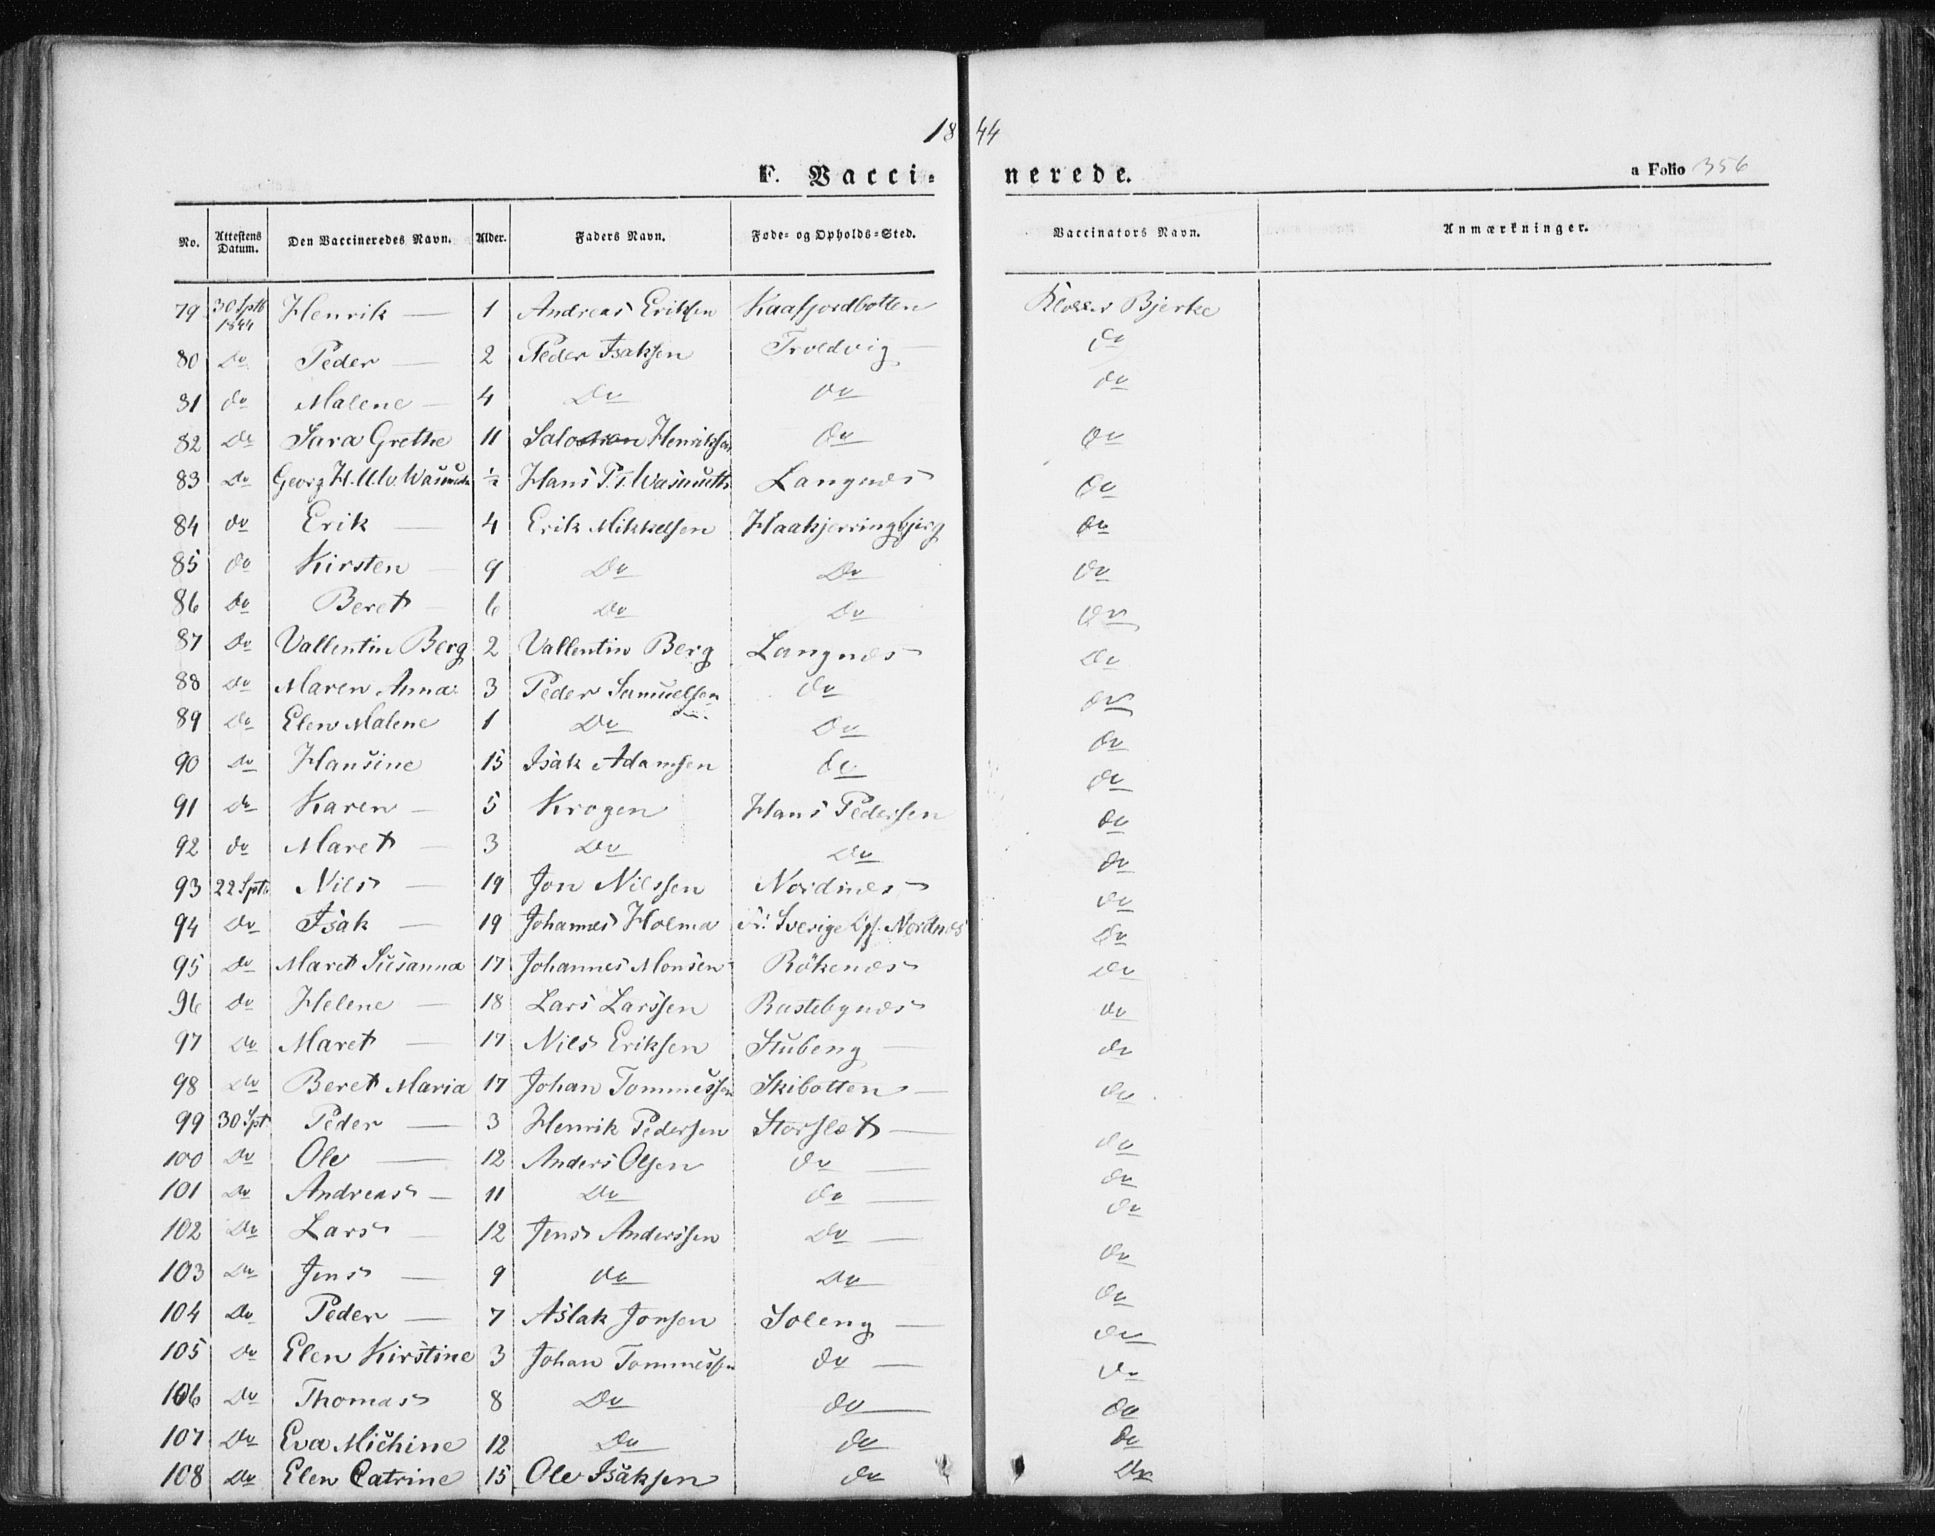 1844
F. Vaccinerede. a Folio 356
No. Attestens Datum. Den Vaccineredes Navn. Alder. Faders Navn. Føde- og Opholds-Sted. Vaccinators Navn. Anmærkninger.
79 30 Sptb 1844 Henrik — 1 Andreas Eriksen Kaafjordbotten Bjerke
80 Do Peder — 2 Peder Isaksen Troldvig — do
81 do Malene — 4 Do do do
82 Do Sara Grethe 11 Salomon Henriksen do do
83 Do Georg H. ½ Hans P. T. Wasmuth Langnæs do
84 do Erik — 4 Erik Mikkelsen Haakjerringbjerg do
85 do Kirsten — 9 Do Do do
86 do Beret — 6 Do Do do
87 Do Vallentin Berg 2 Vallentin Berg Langnæs do
88 Do Maren Anna 3 Peder Samuelsen do do
89 Do Elen Malene 1 Do Do do
90 do Hansine 15 Isak Adamsen do do
91 Do Karen — 5 Krogen Hans Pedersen do
92 do Maret — 3 Do Do do
93 22 Sptb Nils — 19 Jon Nilssen Nordnæs do
94 Do Isak — 19 Johannes Holma Sverige Nordnæs do
95 Do Maret Susanna 17 Johannes Monsen Rökenæs do
96 Do Helene — 18 Lars Larssen Rastebynæs do
97 Do Maret — 17 Nils Eriksen Stubeng — do
98 Do Beret Maria 17 Johan Tommessen Skibotten — do
99 30 Spt Peder — 3 Henrik Pedersen Storslæt — do
100 Do Ole — 12 Anders Olsen do — do
101 Do Andreas — 11 Do do — do
102 Do Lars — 12 Jens Anderssen Do — do
103 Do Jens — 9 do Do do
104 Do Peder — 7 Aslak Jonsen Soleng — do
105 Do Elen Kirstine 3 Johan Tommessen do — do
106 Do Thomas 8 Do do do
107 Do Eva Michine 12 Do do do
108 Do Elen Catrine 15 Ole Isaksen do Do